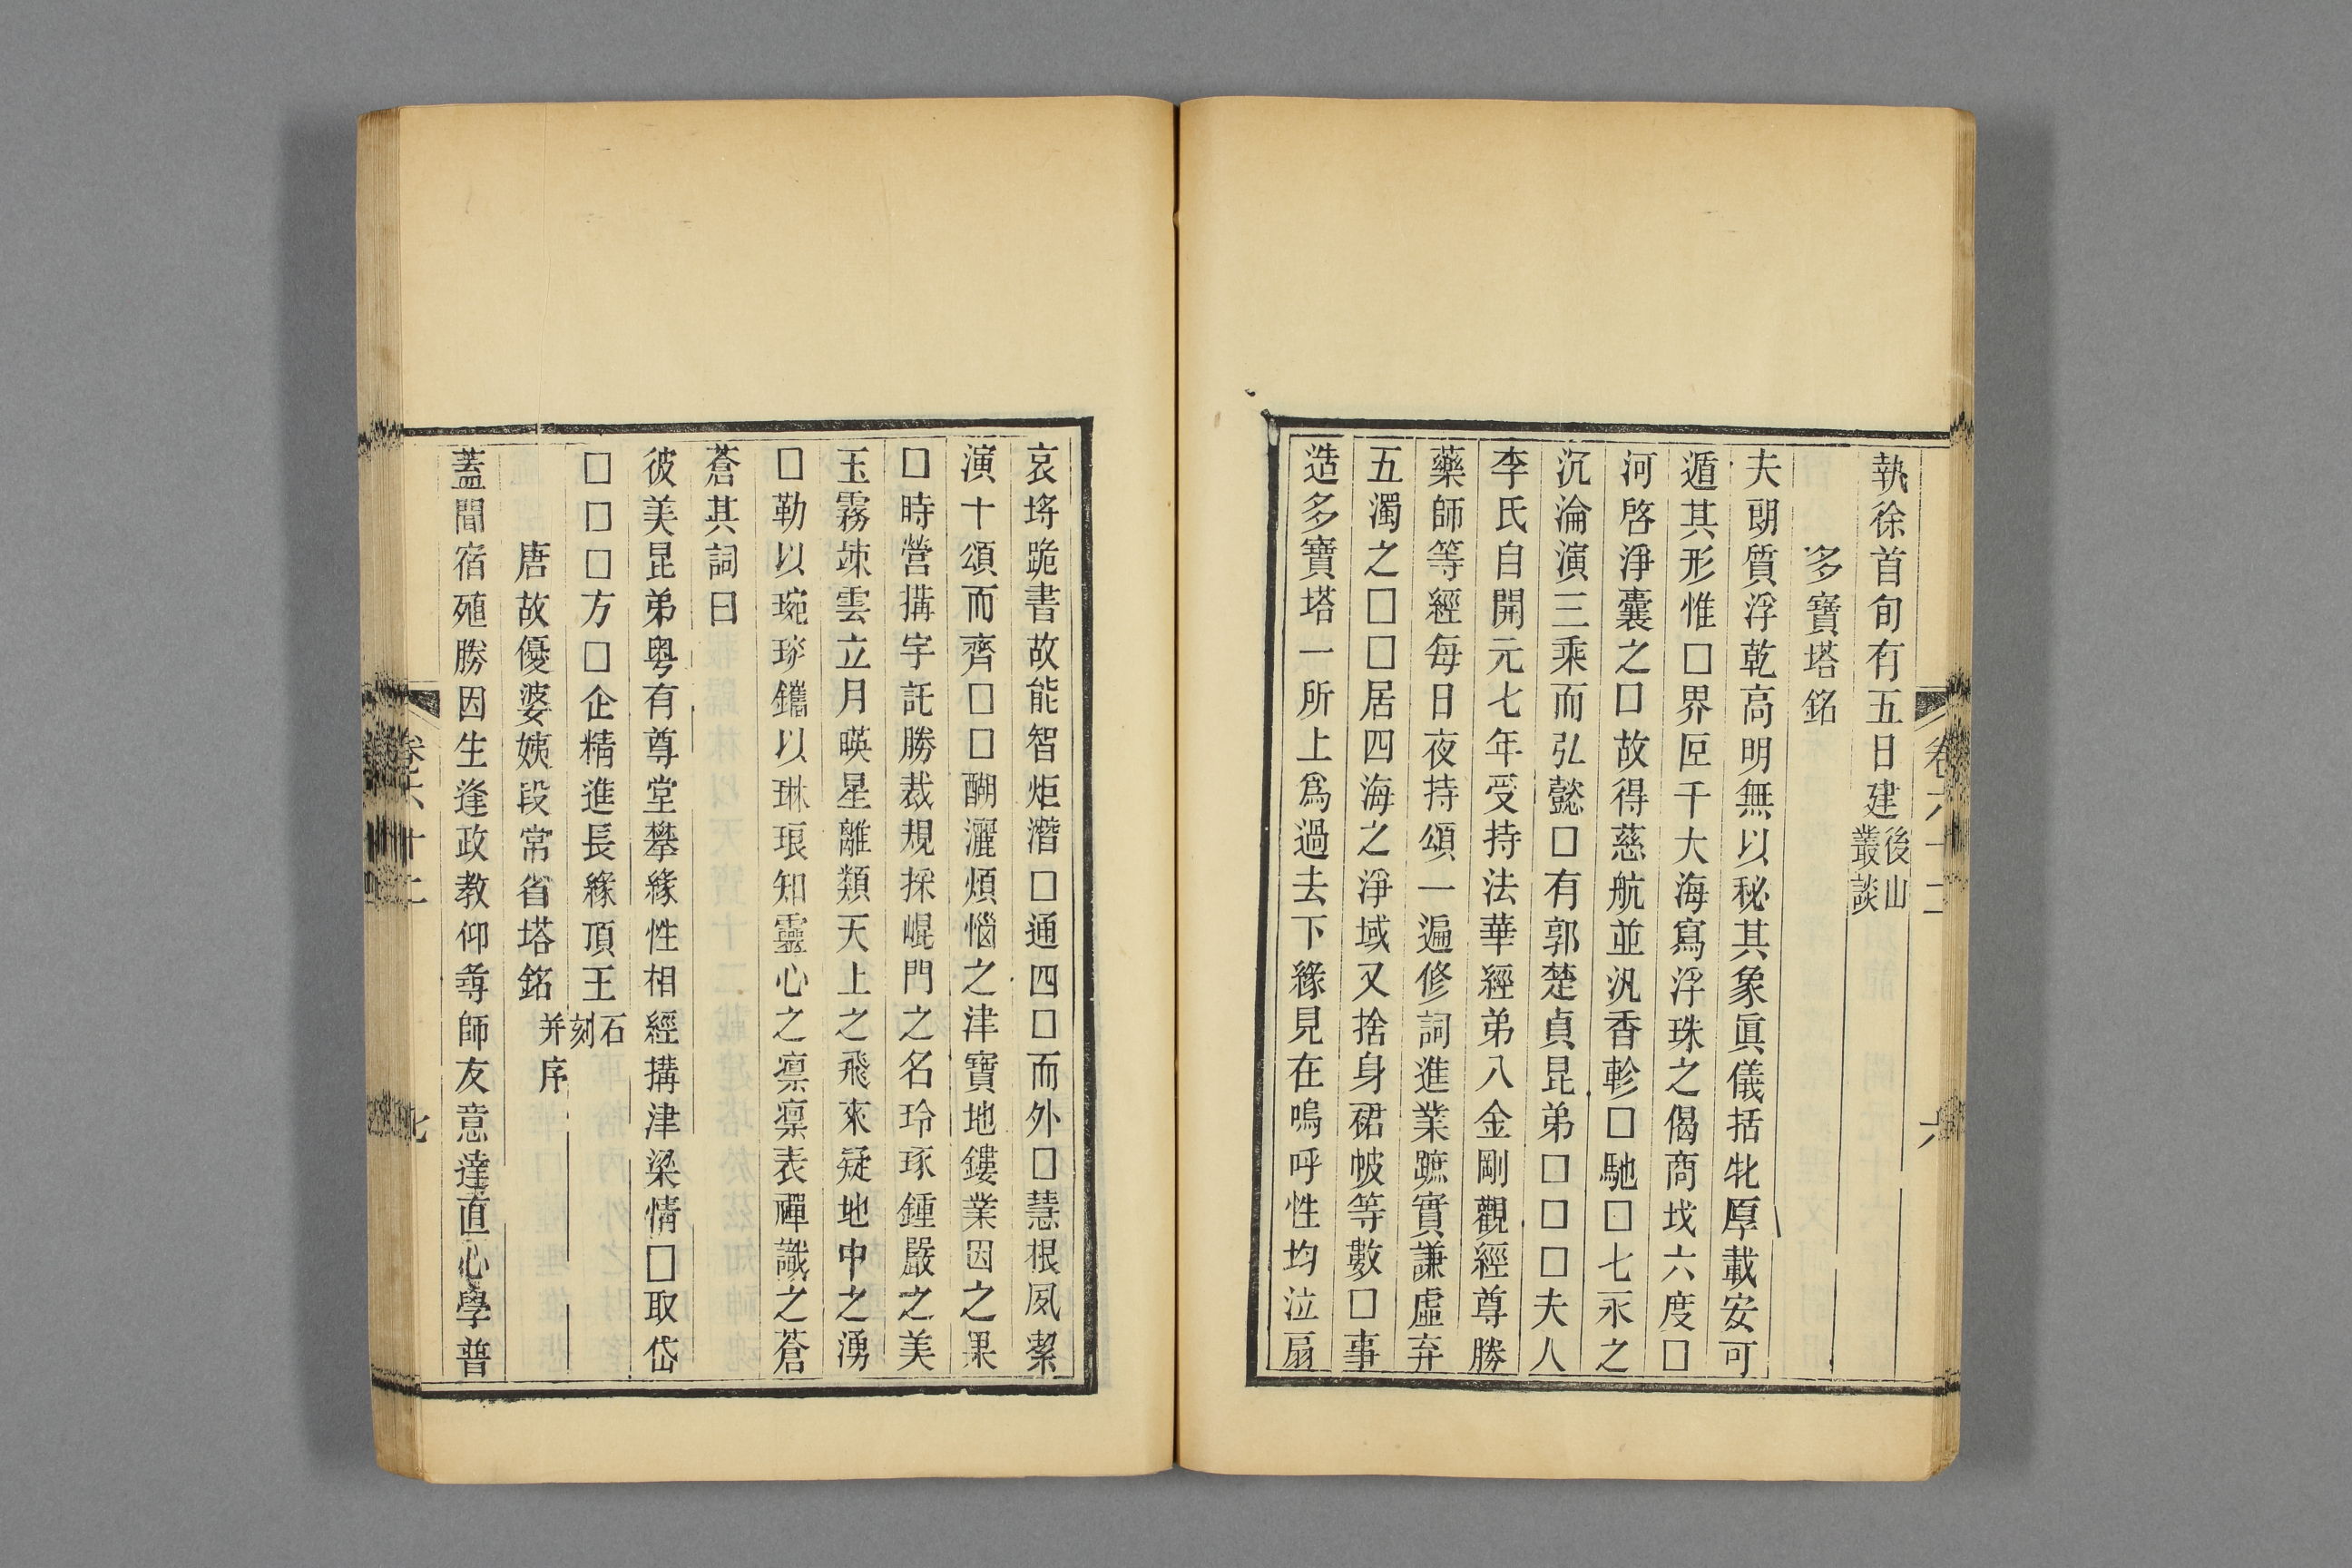 執徐首旬有五日建後山叢談
多寶塔銘
夫朙質浮乾高明無以秘其象眞儀括牝厚載安可
遁其形惟□界匝千大海寫浮珠之偈商垘六度□
河啓淨囊之□故得慈航並汎香軫□馳□七永之
沉淪演三乘而弘懿□有郭楚貞昆弟□□□夫人
李氏自開元七年受持法華經弟八金剛觀經尊勝
藥師等經每日夜持頌一遍修詞進業蹠實謙虛弃
五濁之□□居四海之淨域又捨身裙帔等數□事
造多寶塔一所上爲過去下緣見在嗚呼性均泣扇
哀垶跪書故能智炬濳□通四□而外□慧根夙絜
演十頌而齊□□醐灑煩惱之津寶地鏤業因之果
□時營搆宇託勝裁規採崐門之名玲琢鍾嚴之美
玉霧竦雲立月暎星離類天上之飛來疑地中之湧
□勒以琬琰鑴以琳琅知靈心之凛凛表禪識之蒼
蒼其詞曰
彼美昆弟粤有尊堂攀緣性相經搆津梁情□取岱
□□□方□企精進長緣頂王石刻
唐故優婆姨段常省塔銘并序
蓋聞宿殖勝因生逢政教仰尋師友意達直心學普
卷六十二
六
卷六十二
七